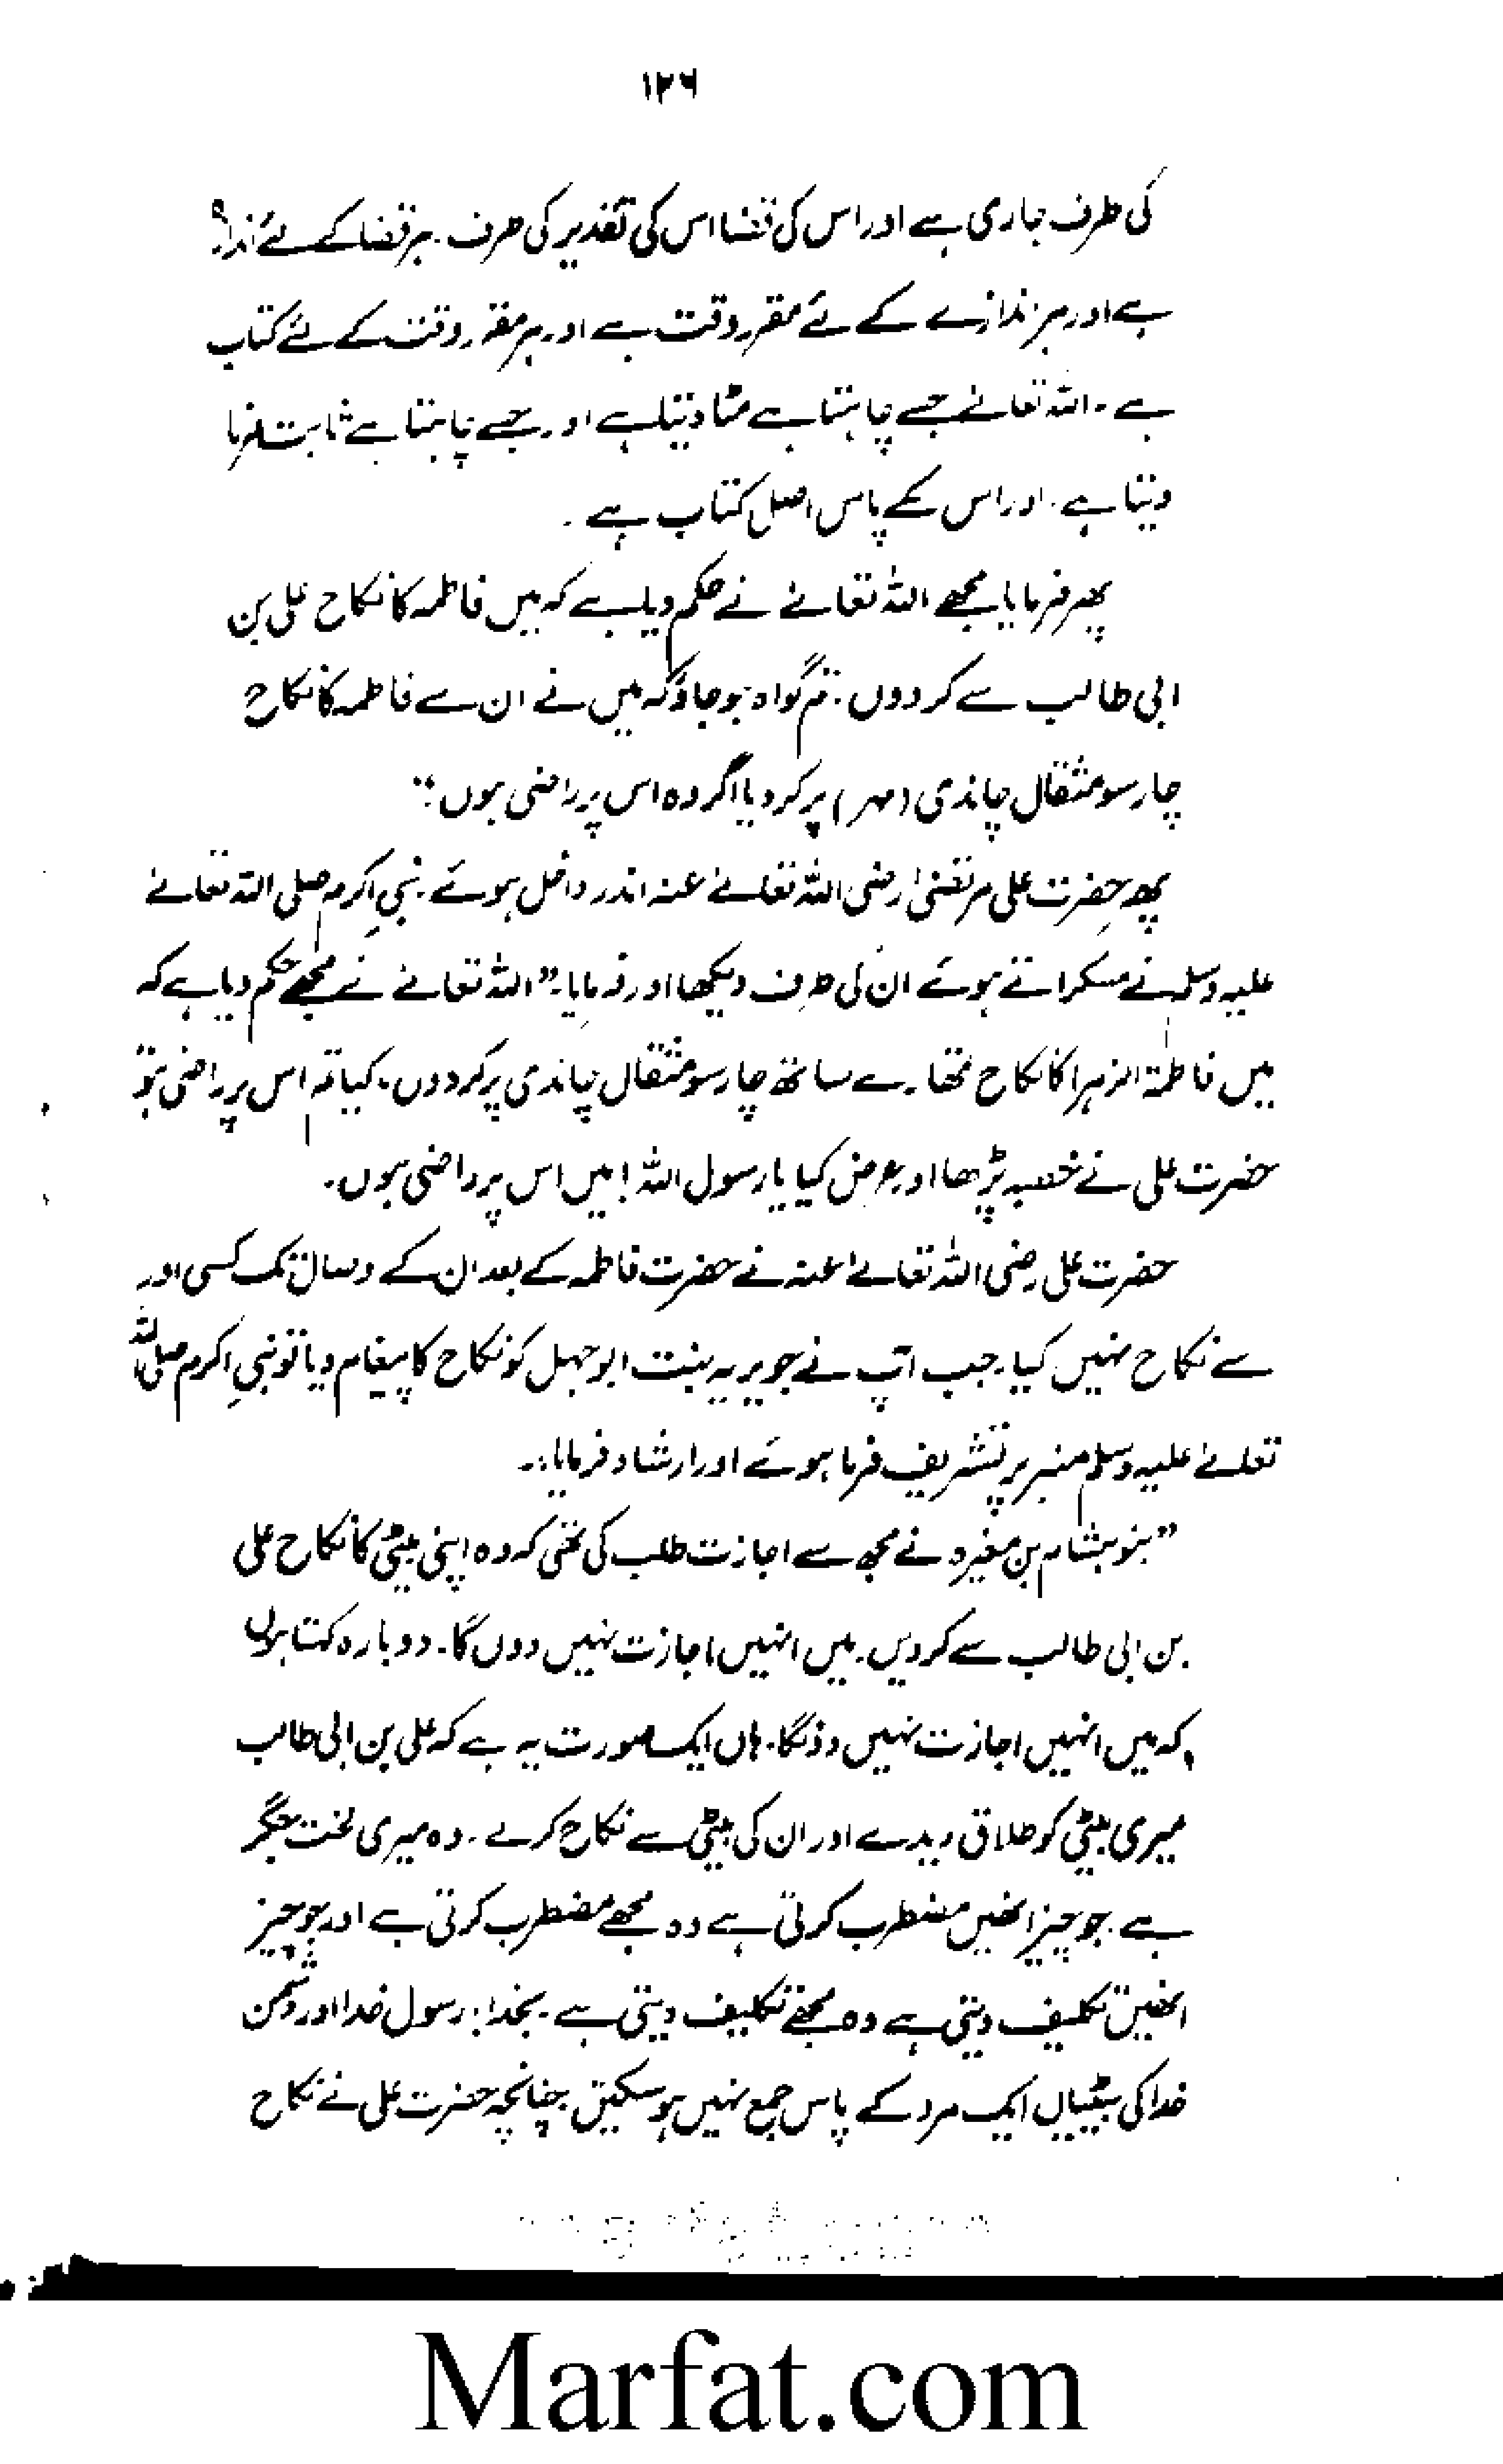 ۱۲۶
کی طرف جاری ہے اور اس کی قضا اس کی تقدیر کی طرف۔ ہر قضا کے لئے اندازہ
ہے اور ہر اندازے کے لئے مقرر وقت ہے اور ہر مقرر وقت کے لئے کتاب
ہے۔ اللہ تعالےٰ جسے چاہتا ہے مٹا دیتا ہے اور جسے چاہتا ہے ثابت فرما
دیتا ہے۔ اور اس کے پاس اصل کتاب ہے۔
پھر فرمایا مجھے اللہ تعالےٰ نے حکم دیا ہے کہ میں فاطمہ کا نکاح علی بن
ابی طالب سے کر دوں۔ تم گواہ ہو جاؤ کہ میں نے ان سے فاطمہ کا نکاح
چار سو مثقال چاندی (مہر) پر کر دیا اگر وہ اس پر راضی ہوں؛"
پھر حضرت علی مرتضیٰ رضی اللہ تعالےٰ عنہ اندر داخل ہوئے۔ نبیِ اکرم صلی اللہ تعالےٰ
علیہ وسلم نے مسکراتے ہوئے ان کی طرف دیکھا اور فرمایا۔ "اللہ تعالےٰ نے مجھے حکم دیا ہے کہ
میں فاطمۃ الزہرا کا نکاح تمھارے ساتھ چار سو مثقال چاندی پر کر دوں۔ کیا تم اس پر راضی ہو؟
حضرت علی نے خطبہ پڑھا اور عرض کیا یا رسول اللہ! میں اس پر راضی ہوں۔
حضرت علی رضی اللہ تعالےٰ عنہ نے حضرت فاطمہ کے بعد ان کے وصال تک کسی اور
سے نکاح نہیں کیا۔ جب آپ نے جویریہ بنت ابوجہل کو نکاح کا پیغام دیا تو نبیِ اکرم صلی اللہ
تعالےٰ علیہ وسلم منبر پر تشریف فرما ہوئے اور ارشاد فرمایا:۔
"بنو ہشام بن مغیرہ نے مجھ سے اجازت طلب کی تھی کہ وہ اپنی بیٹی کا نکاح علی
بن ابی طالب سے کر دیں۔ میں انہیں اجازت نہیں دوں گا۔ دوبارہ کہتا ہوں
کہ میں انہیں اجازت نہیں دونگا۔ ہاں ایک صورت یہ ہے کہ علی بن ابی طالب
میری بیٹی کو طلاق دیدے اور ان کی بیٹی سے نکاح کرلے۔ وہ میری لخت جگر
ہے۔ جو چیز انھیں مضطرب کرتی ہے وہ مجھے مضطرب کرتی ہے اور جو چیز
انھیں تکلیف دیتی ہے وہ مجھے تکلیف دیتی ہے۔ بخدا! رسول خدا اور دشمن
خدا کی بیٹیاں ایک مرد کے پاس جمع نہیں ہو سکتیں چنانچہ حضرت علی نے نکاح
Marfat.com